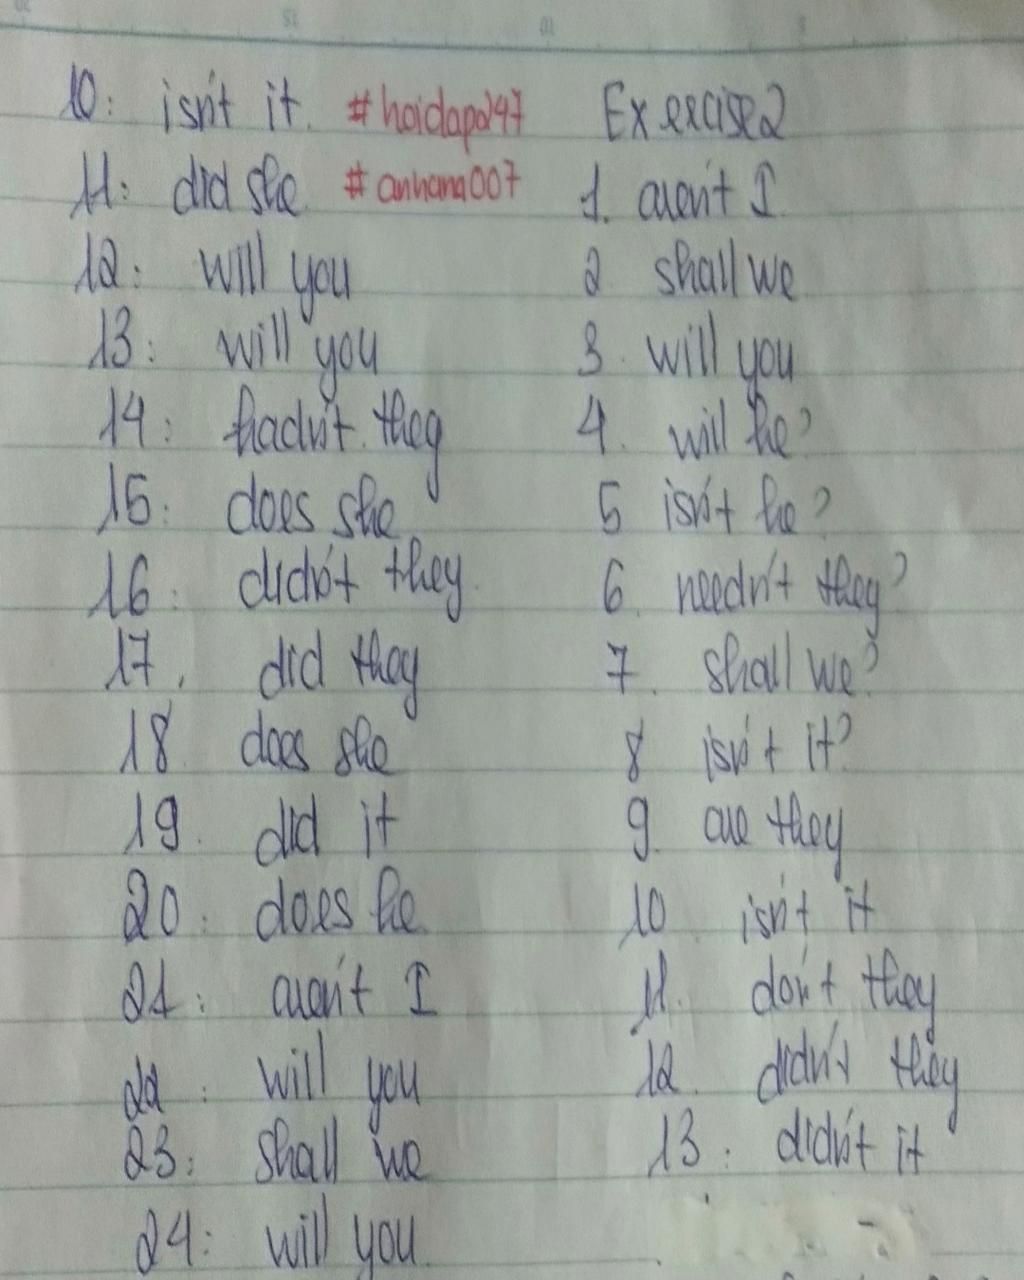 10: isn't it. #hoidap247
11: did she #anhang007
12: will you
13: will you
14: hadn't they
15: does she
16: didn't they
17. did they
18. does she
19. did it
20: does he
21: aren't I
22: will you
23: shall we
24: will you
Exercise 2
1. aren't I
2 shall we
3. will you
4. will he?
5 isn't he?
6. needn't they?
7. shall we?
8 isn't it?
9. are they
10 isn't it
11. don't they
12. didn't they
13: didn't it